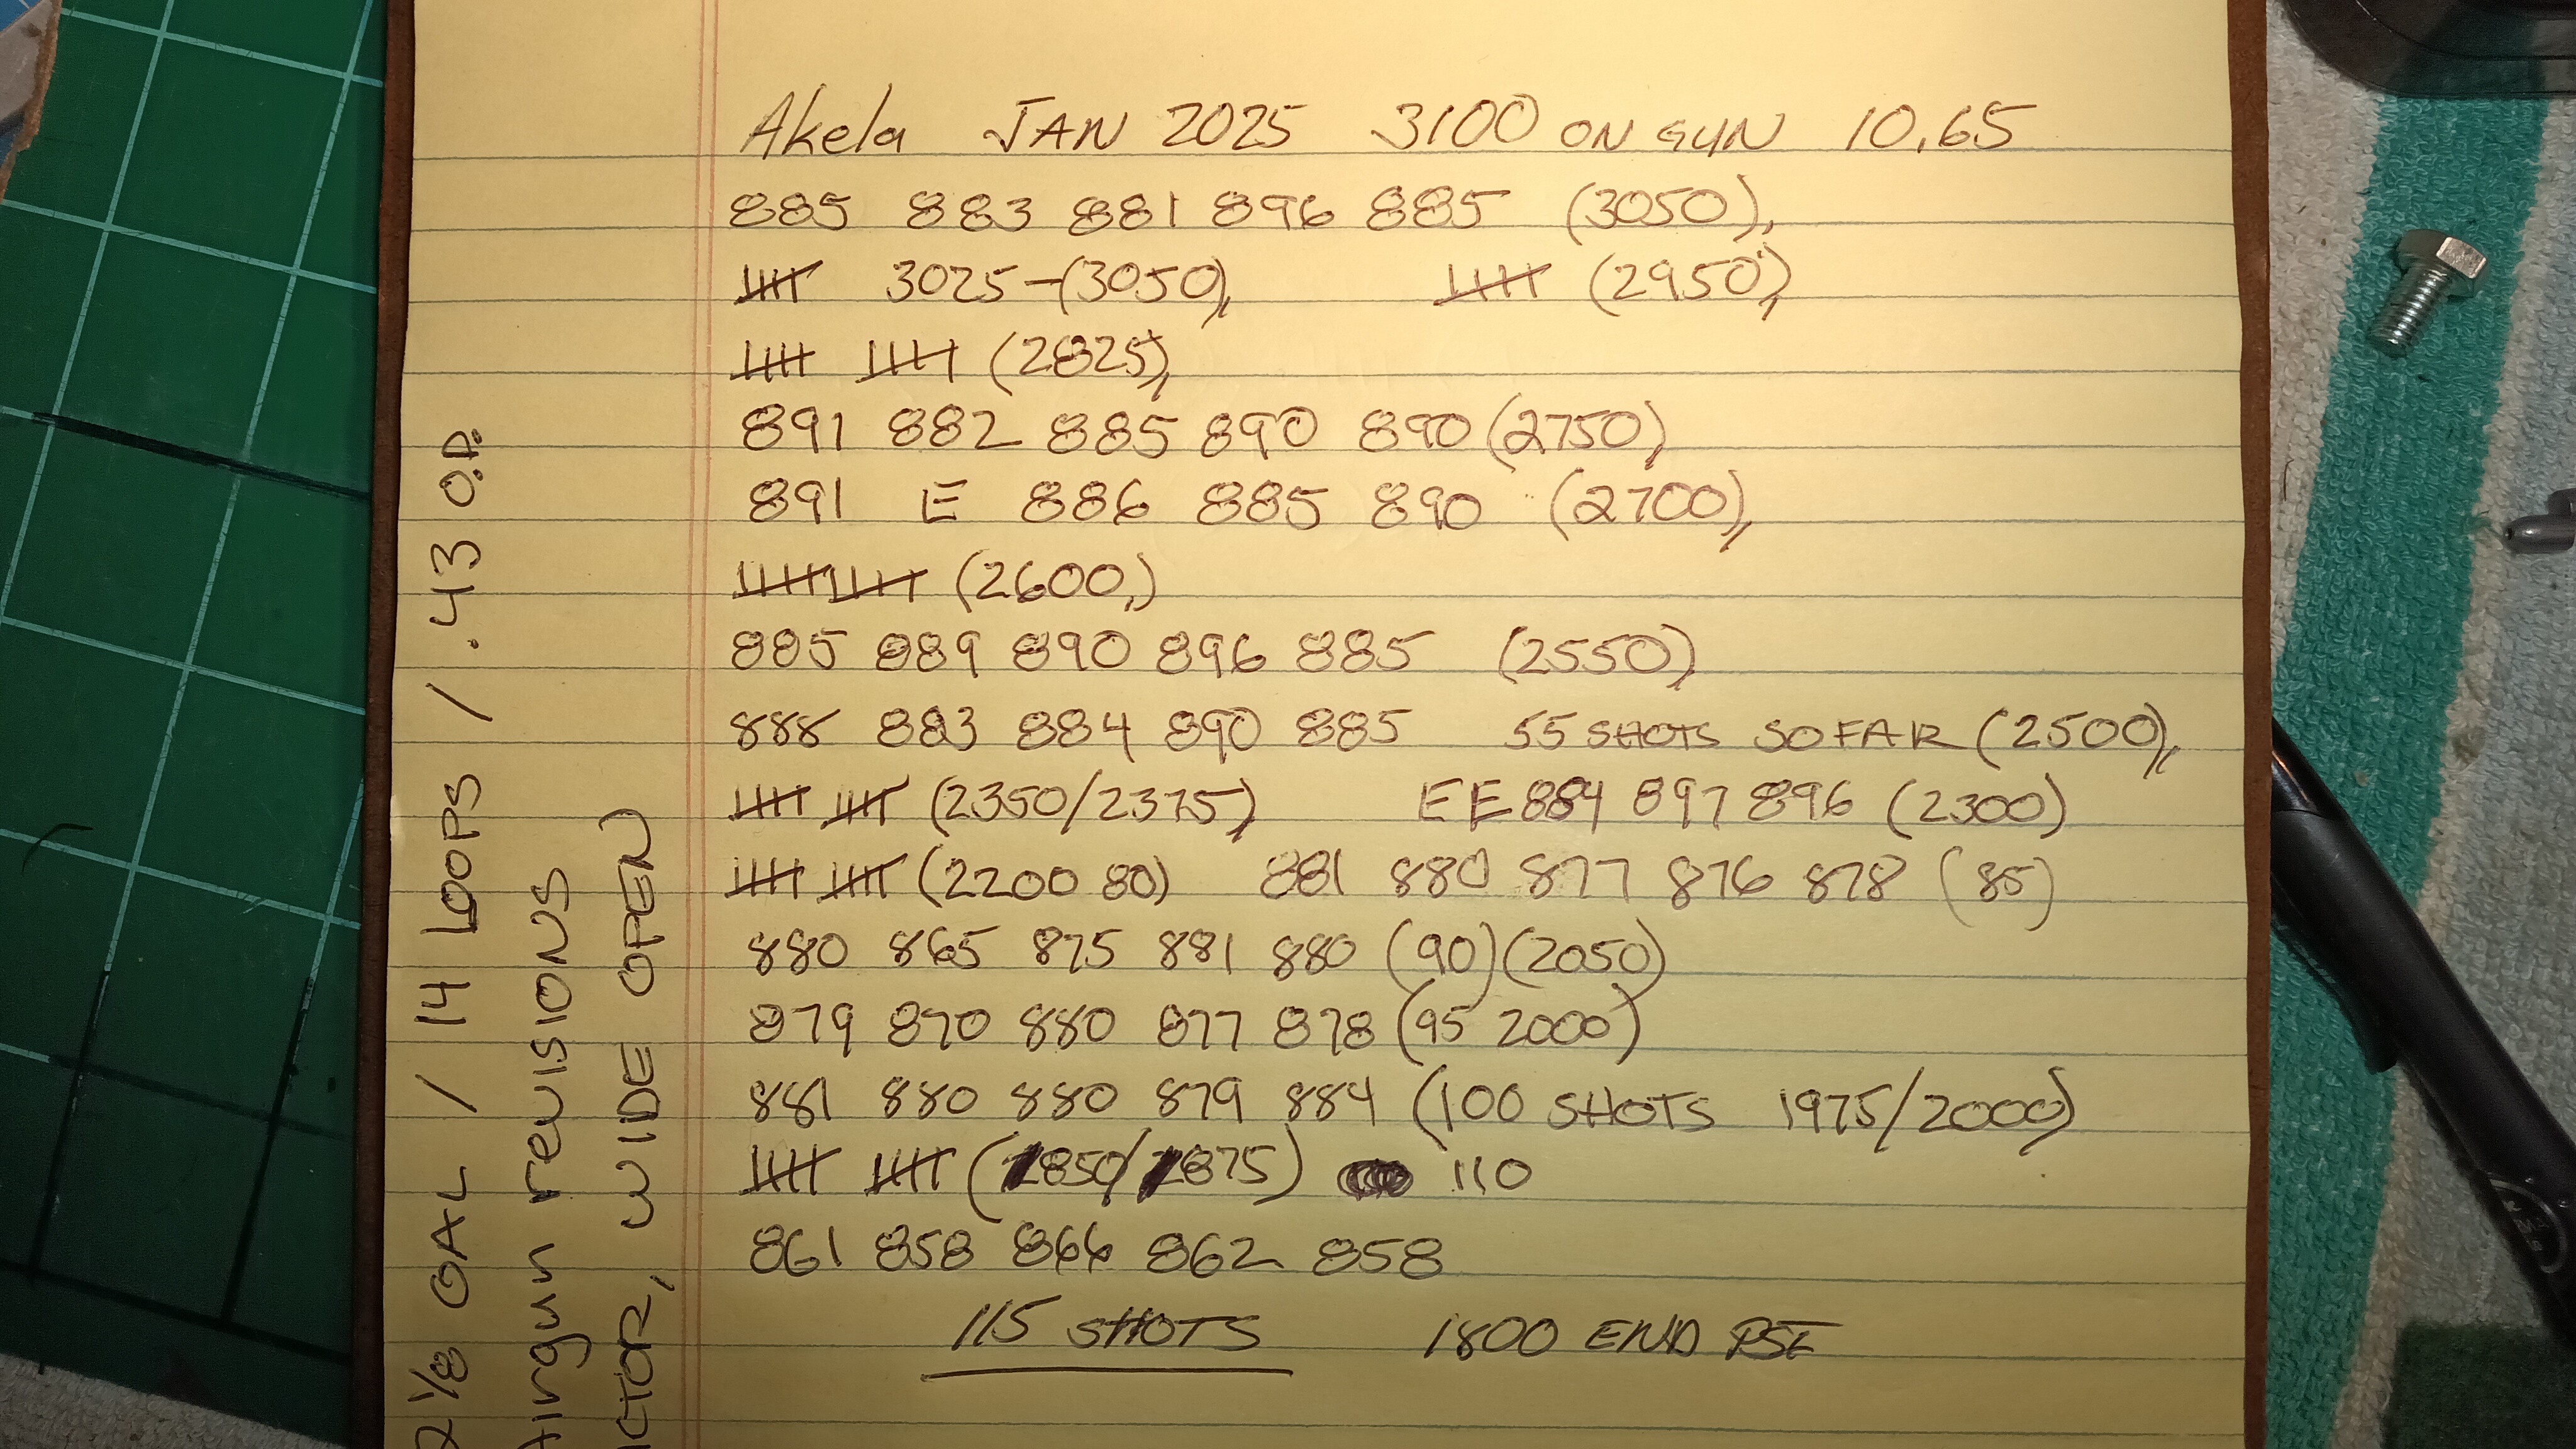 Akela JAN 2025 3100 ON GUN 10.65
885 883 881 896 885 (3050),
3025-(3050), (2950),
(2825),
891 882 885 890 890 (2750),
891 E 886 885 890 (2700),
(2600,)
885 889 890 896 885 (2550),
888 883 884 890 885 55 SHOTS SO FAR (2500),
(2350/2375) EE 884 897 896 (2300)
(2200 80) 881 880 877 876 878 (85)
880 865 875 881 880 (90) (2050)
879 870 880 877 878 (95 2000)
881 880 880 879 884 (100 SHOTS 1975/2000)
(1850/1875) 110
861 858 866 862 858
115 SHOTS 1800 END
2 1/8 OAL / 14 LOOPS / .43 O.D.
Airgun revisions
WIDE OPEN